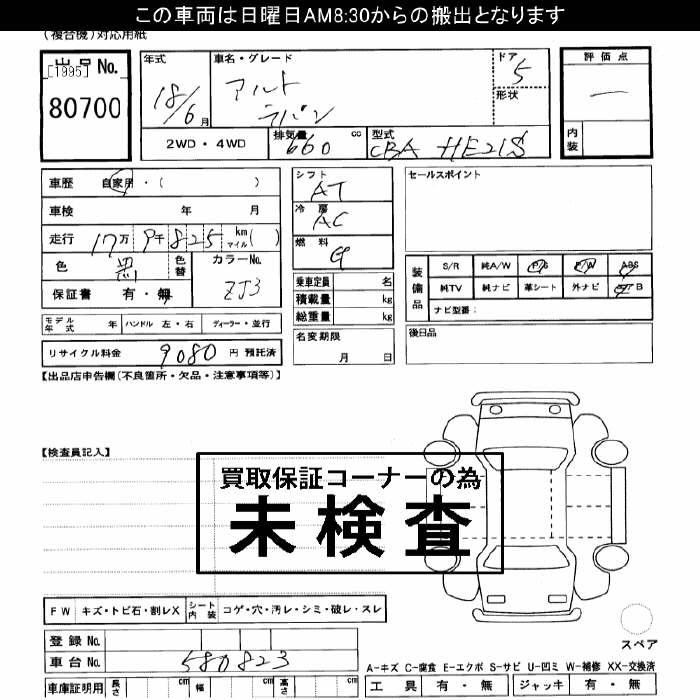 この車両は日曜日AM8:30からの搬出となります
(複合機)対応用紙
出品 No.
[1995]
80700
年式
18/6月
車名・グレード
アルト
ラパン
ドア
5
形状
2WD・4WD
排気量
660 cc
型式
CBA HE21S
評価点
—
内装
車歴 自家用・( )
車検 年 月
走行 17万 9千 825 km マイル( )
色 黒 色替
カラーNo.
ZJ3
保証書 有・無
モデル年式 年 ハンドル 左・右 ディーラー・並行
リサイクル料金 9080 円 預託済
シフト
AT
冷房
AC
燃料
G
乗車定員 名
積載量 kg
総重量 kg
名変期限
月 日
セールスポイント
装備品
S/R 純A/W P/S P/W ABS
純TV 純ナビ 革シート 外ナビ エアB
ナビ型番:
後日品
【出品店申告欄(不良箇所・欠品・注意事項等)】
【検査員記入】
買取保証コーナーの為
未検査
FW キズ・トビ石・割レX シート内装 コゲ・穴・汚レ・シミ・破レ・スレ
登録 No.
車台 No. 580823
車庫証明用 長さ cm 幅 cm 高さ cm
スペア
A-キズ C-腐食 E-エクボ S-サビ U-凹ミ W-補修 XX-交換済
工具 有・無 ジャッキ 有・無